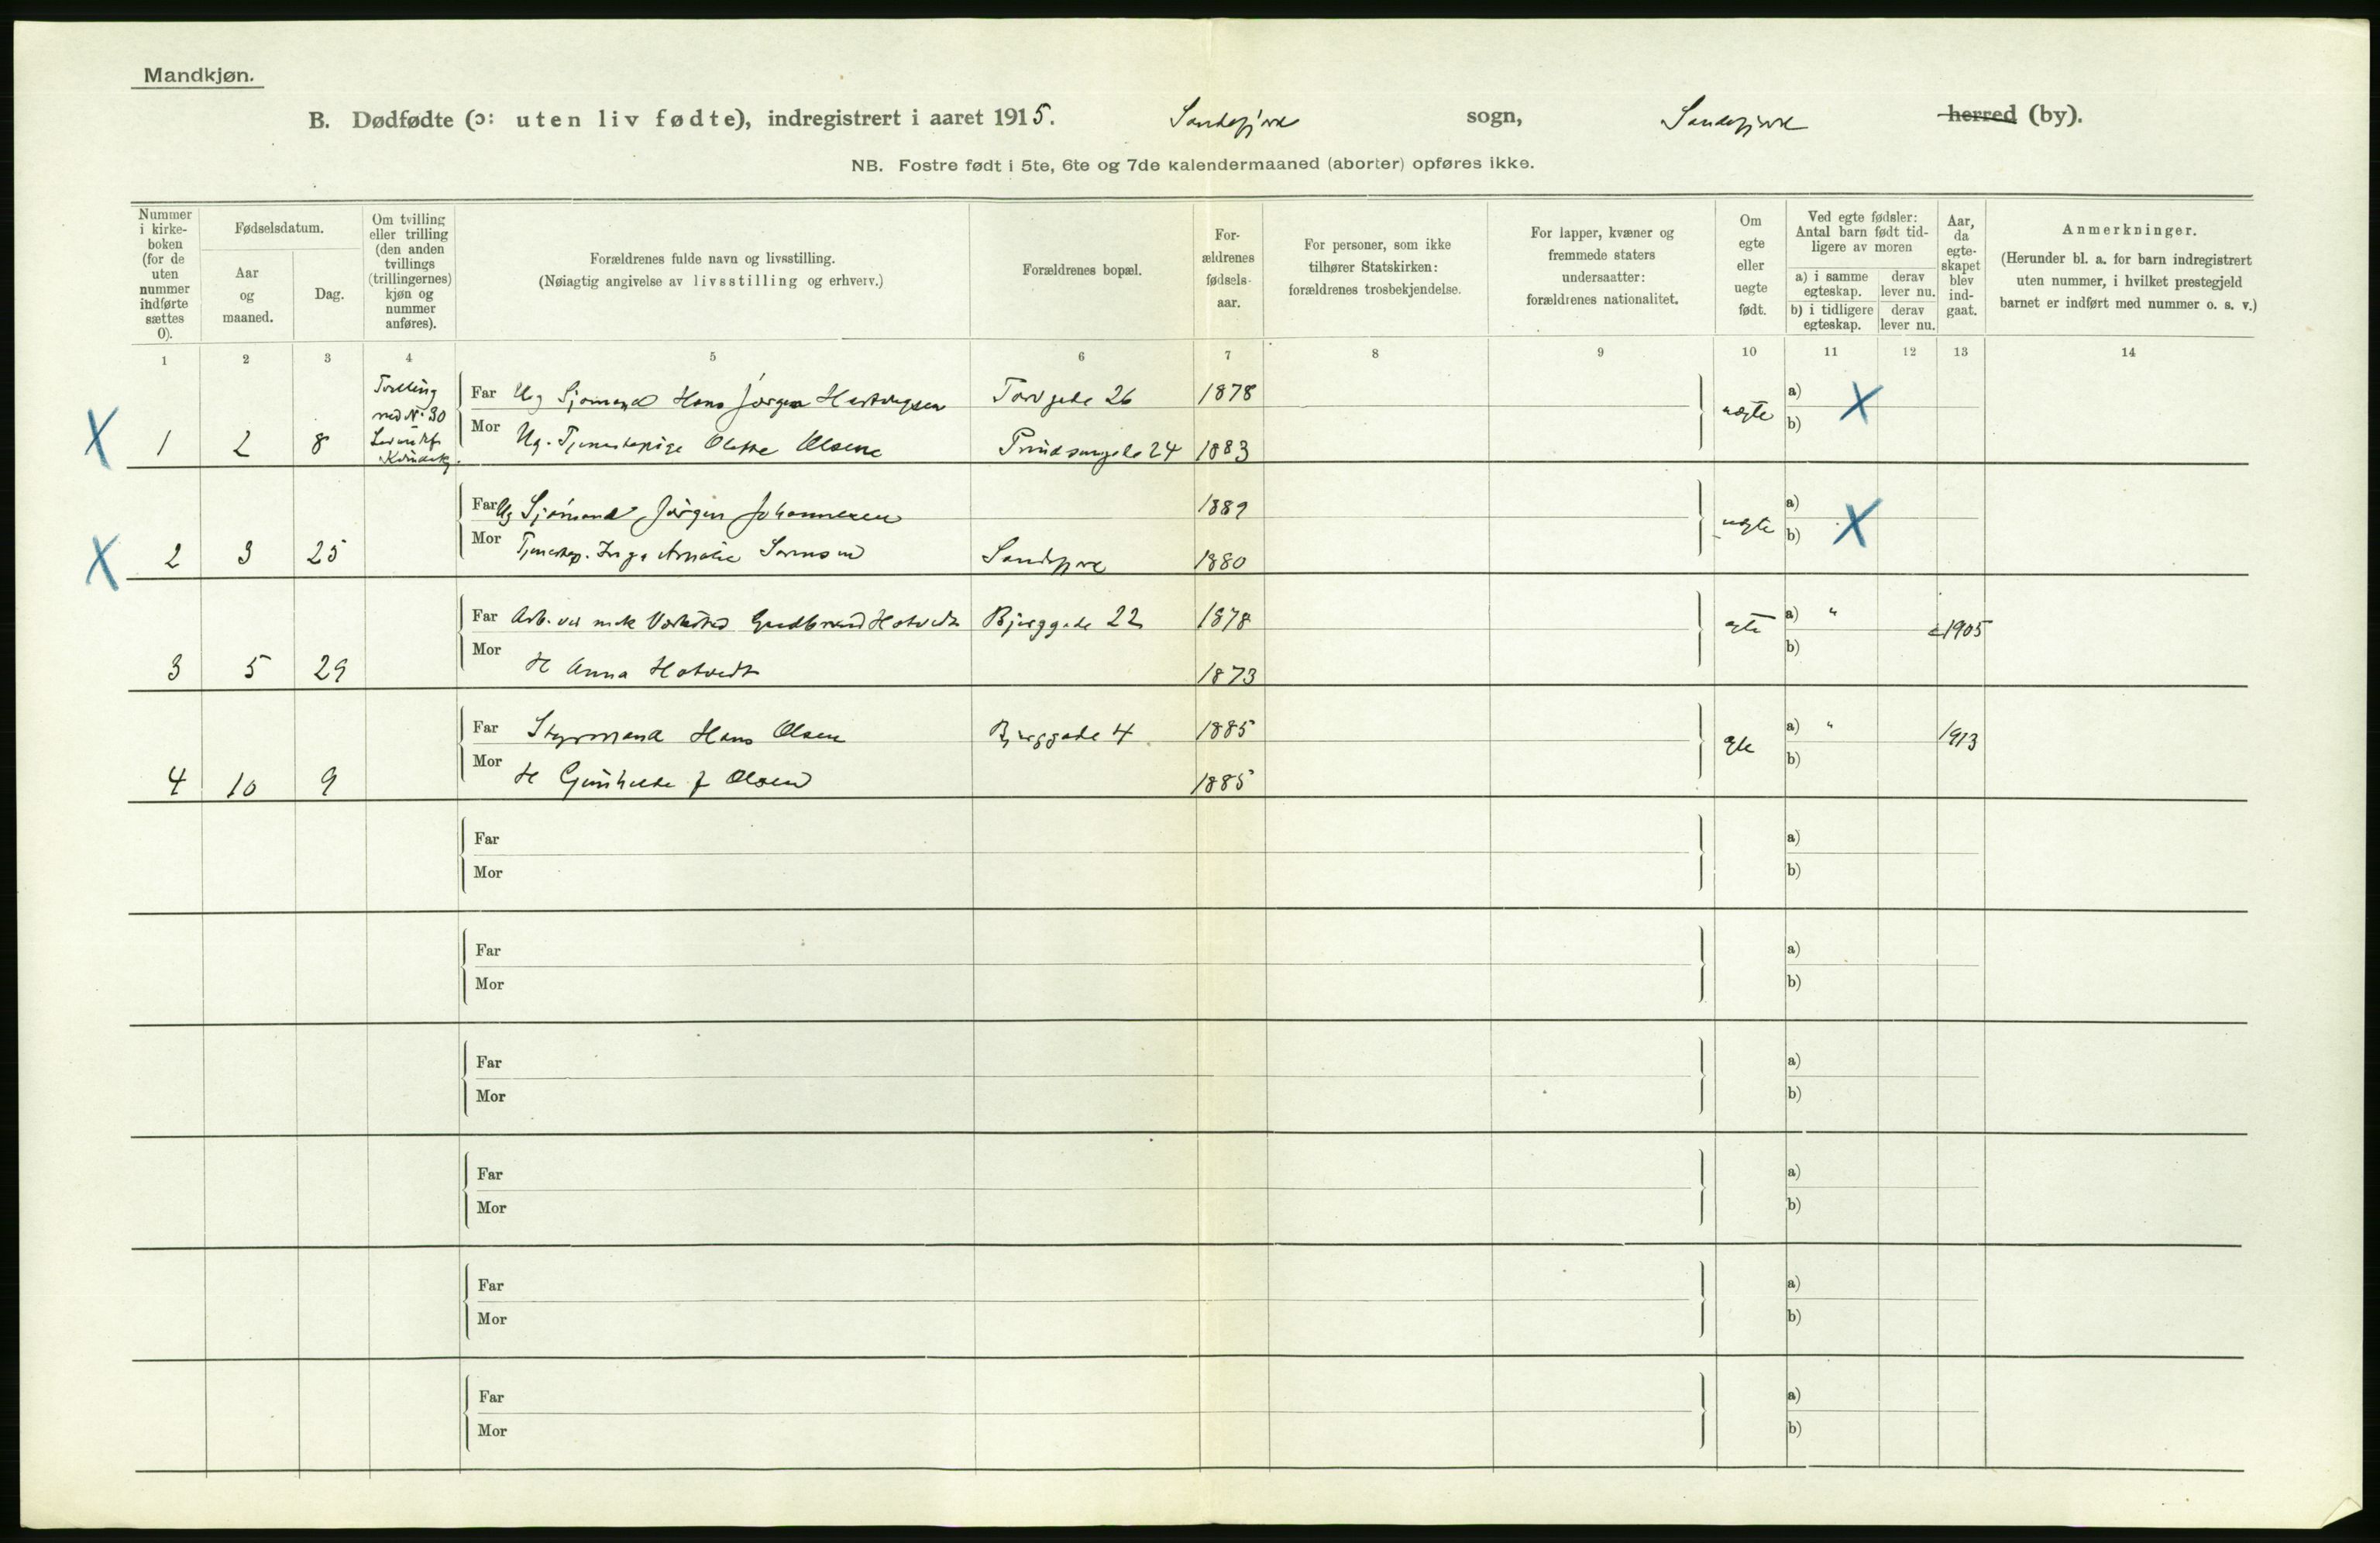 Mandkjøn.
B. Dødfødte (ɔ: uten liv fødte), indregistrert i aaret 1915. Sandefjord sogn, Sandefjord herred (by).
NB. Fostre født i 5te, 6te og 7de kalendermaaned (aborter) opføres ikke.
Nummer
i kirke-
boken
(for de
uten
nummer
indførte
sættes
0).
Fødselsdatum.
Aar
og
maaned.
Dag.
Om tvilling
eller trilling
(den anden
tvillings
(trillingernes)
kjøn og
nummer
anføres).
Forældrenes fulde navn og livsstilling.
(Nøiagtig angivelse av livsstilling og erhverv.)
Forældrenes bopæl.
For-
ældrenes
fødsels-
aar.
For personer, som ikke
tilhører Statskirken:
forældrenes trosbekjendelse.
For lapper, kvæner og
fremmede staters
undersaatter:
forældrenes nationalitet.
Om
egte
eller
uegte
født.
Ved egte fødsler:
Antal barn født tid-
ligere av moren
a) i samme
egteskap.
derav
lever nu.
b) i tidligere
egteskap.
derav
lever nu.
Aar,
da
egte-
skapet
blev
ind-
gaat.
Anmerkninger.
(Herunder bl. a. for barn indregistrert
uten nummer, i hvilket prestegjeld
barnet er indført med nummer o. s. v.)
1 2 3 4 5 6 7 8 9 10 11 12 13 14
Tvilling
med N. 30
Levendef
Kvindekj.
X 1 2 8
Far Ug Sjømand Hans Jørgen Hertvigsen Torvgade 26 1878
Mor Ug. Tjenestepige Olefine Olsene 24 1883
uegte a) b) X
X 2 3 25
Far Ug Sjømand Jørgen Johannesen 1889
Mor Tjenestep. Inga Amalie Sørensen Sandefjord 1880
uegte a) b) X
3 5 29
Far Arb. ved mek Værksted Gudbrand Hotvedt Bjerggade 22 1878
Mor H Anna Hotvedt 1873
egte a) " b) 1905
4 10 9
Far Styrmand Hans Olsen Bjerggade 4 1885
Mor H Gunhilde J Olsen 1885
egte a) " b) 1913
Far a)
Mor b)
Far a)
Mor b)
Far a)
Mor b)
Far a)
Mor b)
Far a)
Mor b)
Far a)
Mor b)